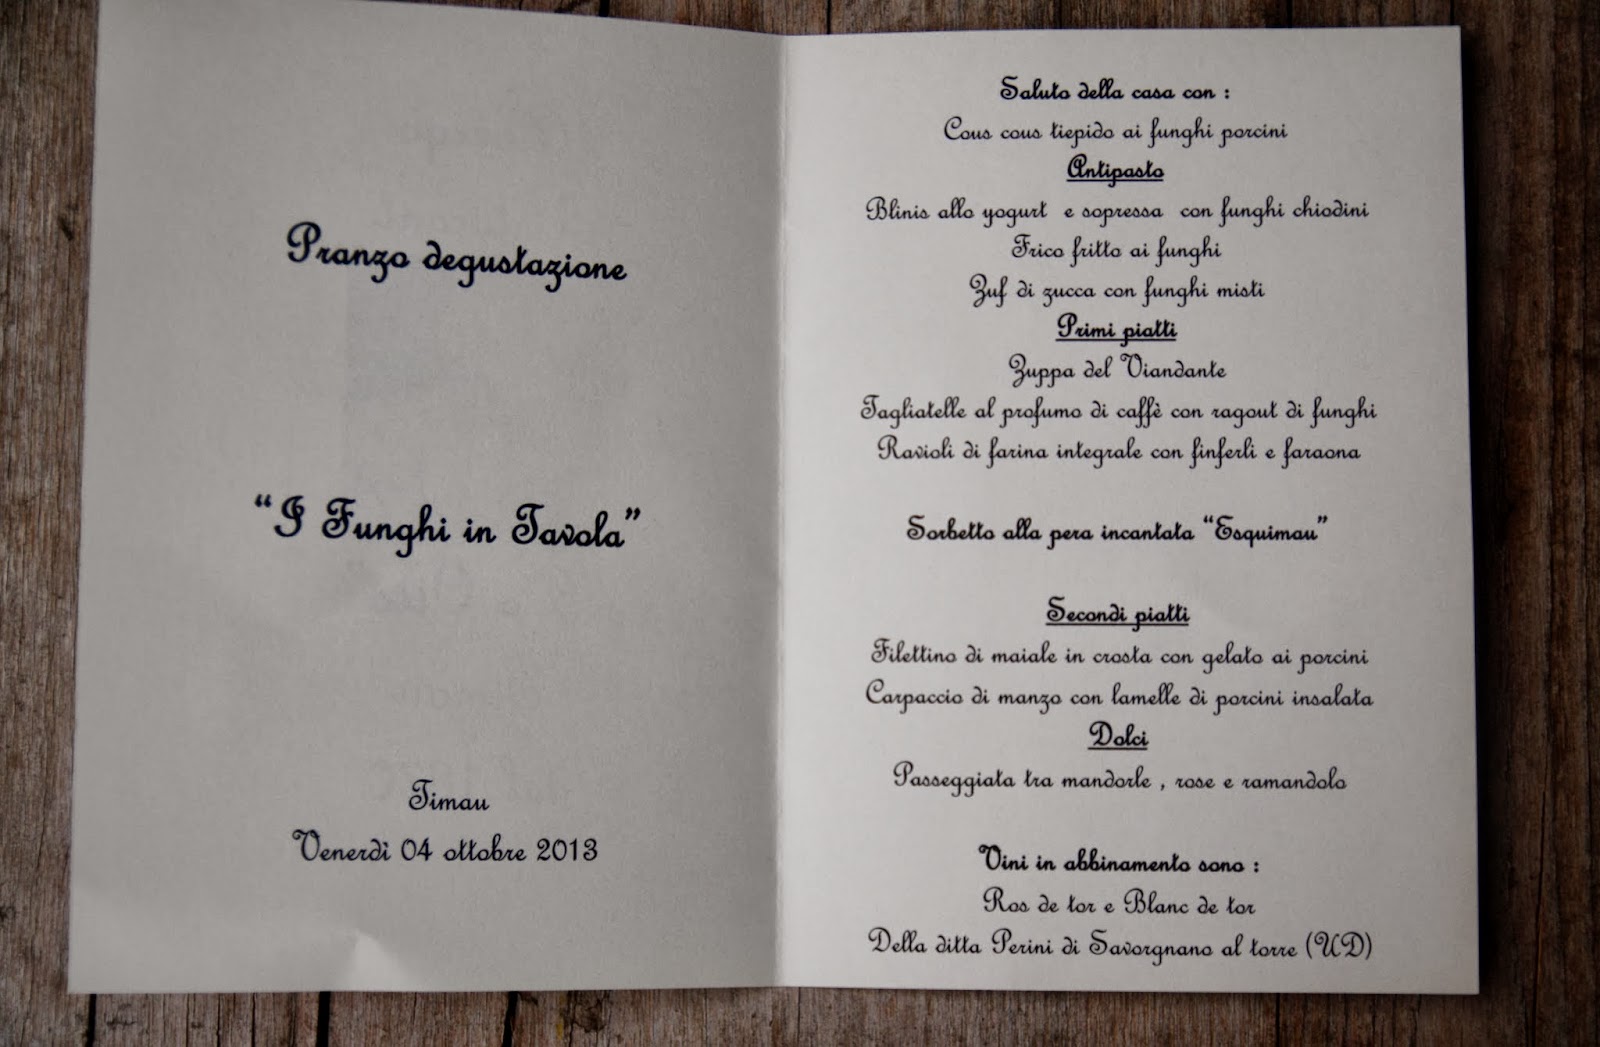 Pranzo degustazione
“I Funghi in Tavola”
Timau
Venerdì 04 ottobre 2013
Saluto della casa con :
Cous cous tiepido ai funghi porcini
Antipasto
Blinis allo yogurt e sopressa con funghi chiodini
Frico fritto ai funghi
Zuf di zucca con funghi misti
Primi piatti
Zuppa del Viandante
Tagliatelle al profumo di caffè con ragout di funghi
Ravioli di farina integrale con finferli e faraona
Sorbetto alla pera incantata “Esquimau”
Secondi piatti
Filettino di maiale in crosta con gelato ai porcini
Carpaccio di manzo con lamelle di porcini insalata
Dolci
Passeggiata tra mandorle , rose e ramandolo
Vini in abbinamento sono :
Ros de tor e Blanc de tor
Della ditta Perini di Savorgnano al torre (UD)